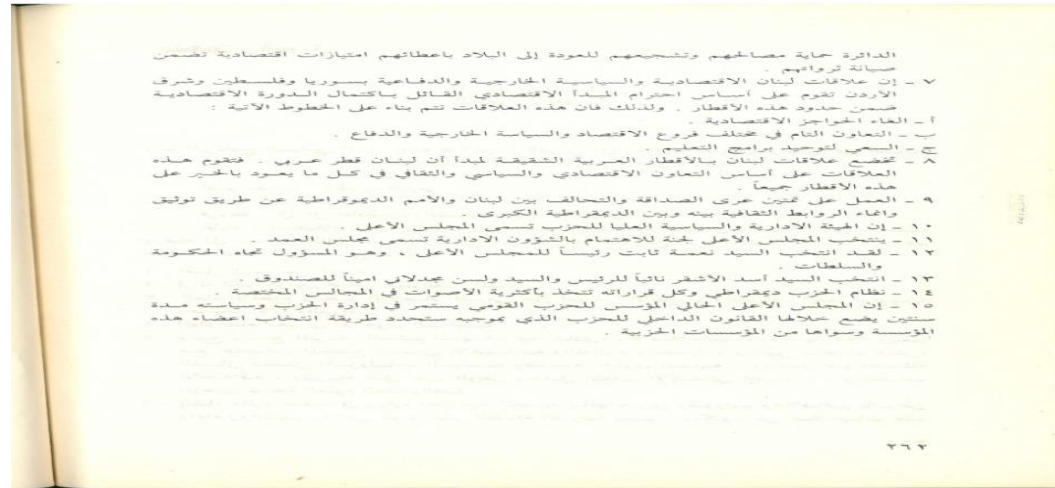 الدائرة حماية مصالحهم وتشجيعهم للعودة إلى البلاد باعطائهم امتيازات اقتصادية تضمن
صيانة ثرواتهم .
٧ - إن علاقات لبنان الاقتصادية والسياسية الخارجية والدفاعية بسوريا وفلسطين وشرق
الأردن تقوم على أساس احترام المبدأ الاقتصادي القائل باكتمال الدورة الاقتصادية
ضمن حدود هذه الأقطار . ولذلك فان هذه العلاقات تتم بناء على الخطوط الآتية :
أ - الغاء الحواجز الاقتصادية .
ب - التعاون التام في مختلف فروع الاقتصاد والسياسة الخارجية والدفاع .
ج - السعي لتوحيد برامج التعليم .
٨ - تخضع علاقات لبنان بالأقطار العربية الشقيقة لمبدأ أن لبنان قطر عربي . فتقوم هذه
العلاقات على أساس التعاون الاقتصادي والسياسي والثقافي في كل ما يعود بالخير على
هذه الاقطار جميعاً .
٩ - العمل على تمتين عرى الصداقة والتحالف بين لبنان والأمم الديموقراطية عن طريق توثيق
وانماء الروابط الثقافية بينه وبين الديمقراطية الكبرى .
١٠ - إن الهيئة الادارية والسياسية العليا للحزب تسمى المجلس الأعلى .
١١ - ينتخب المجلس الأعلى لجنة للاهتمام بالشؤون الادارية تسمى مجلس العمد .
١٢ - لقد انتخب السيد نعمة ثابت رئيساً للمجلس الأعلى ، وهو المسؤول تجاه الحكومة
والسلطات .
١٣ - انتخب السيد أسد الأشقر نائباً للرئيس والسيد ولسن مجدلاني اميناً للصندوق .
١٤ - نظام الحزب ديمقراطي وكل قراراته تتخذ بأكثرية الأصوات في المجالس المختصة .
١٥ - إن المجلس الأعلى الحالي المؤسس للحزب القومي يستمر في إدارة الحزب وسياسته مدة
سنتين يضع خلالها القانون الداخلي للحزب الذي بموجبه ستحدد طريقة انتخاب اعضاء هذه
المؤسسة وسواها من المؤسسات الحزبية .
٢٦٢